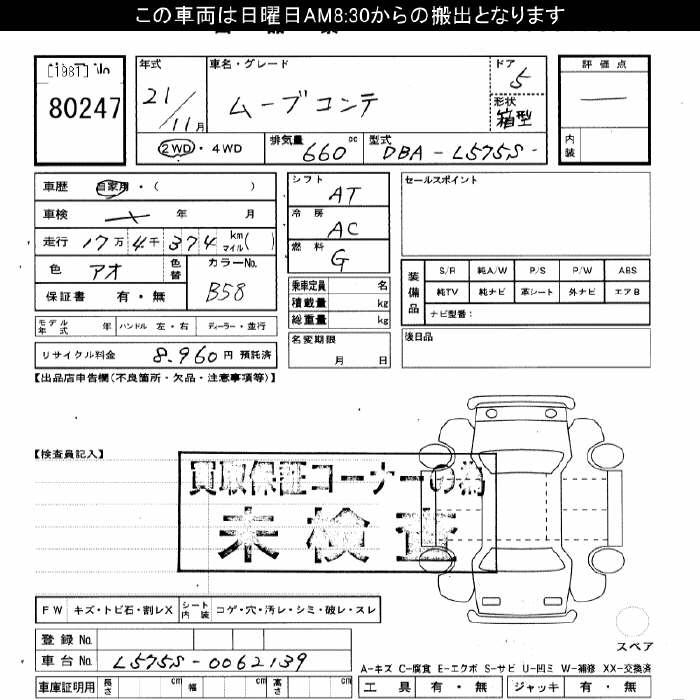 この車両は日曜日AM8:30からの搬出となります
[1987] No
80247
年式
21/11月
車名・グレード
ムーブコンテ
ドア
5
形状
箱型
評価点
―
内装
2WD・4WD
排気量
660 cc
型式
DBA-L575S-
車歴 自家用・( )
車検 年 月
走行 17万 4千 374 km マイル( )
色 アオ 色替
カラーNo. B58
保証書 有・無
シフト
AT
冷房
AC
燃料
G
乗車定員 名
積載量 kg
総重量 kg
名変期限
月 日
セールスポイント
装備品
S/R 純A/W P/S P/W ABS
純TV 純ナビ 革シート 外ナビ エアB
ナビ型番:
後日品
モデル年式 年 ハンドル 左・右 ディーラー・並行
リサイクル料金 8,960 円 預託済
【出品店申告欄(不良箇所・欠品・注意事項等)】
【検査員記入】
買取保証コーナーの為
未検査
FW キズ・トビ石・割レX シート内装 コゲ・穴・汚レ・シミ・破レ・スレ
登録No.
車台No. L575S-0062139
車庫証明用 長さ cm 幅 cm 高さ cm
スペア
A-キズ C-腐食 E-エクボ S-サビ U-凹ミ W-補修 XX-交換済
工具 有・無 ジャッキ 有・無